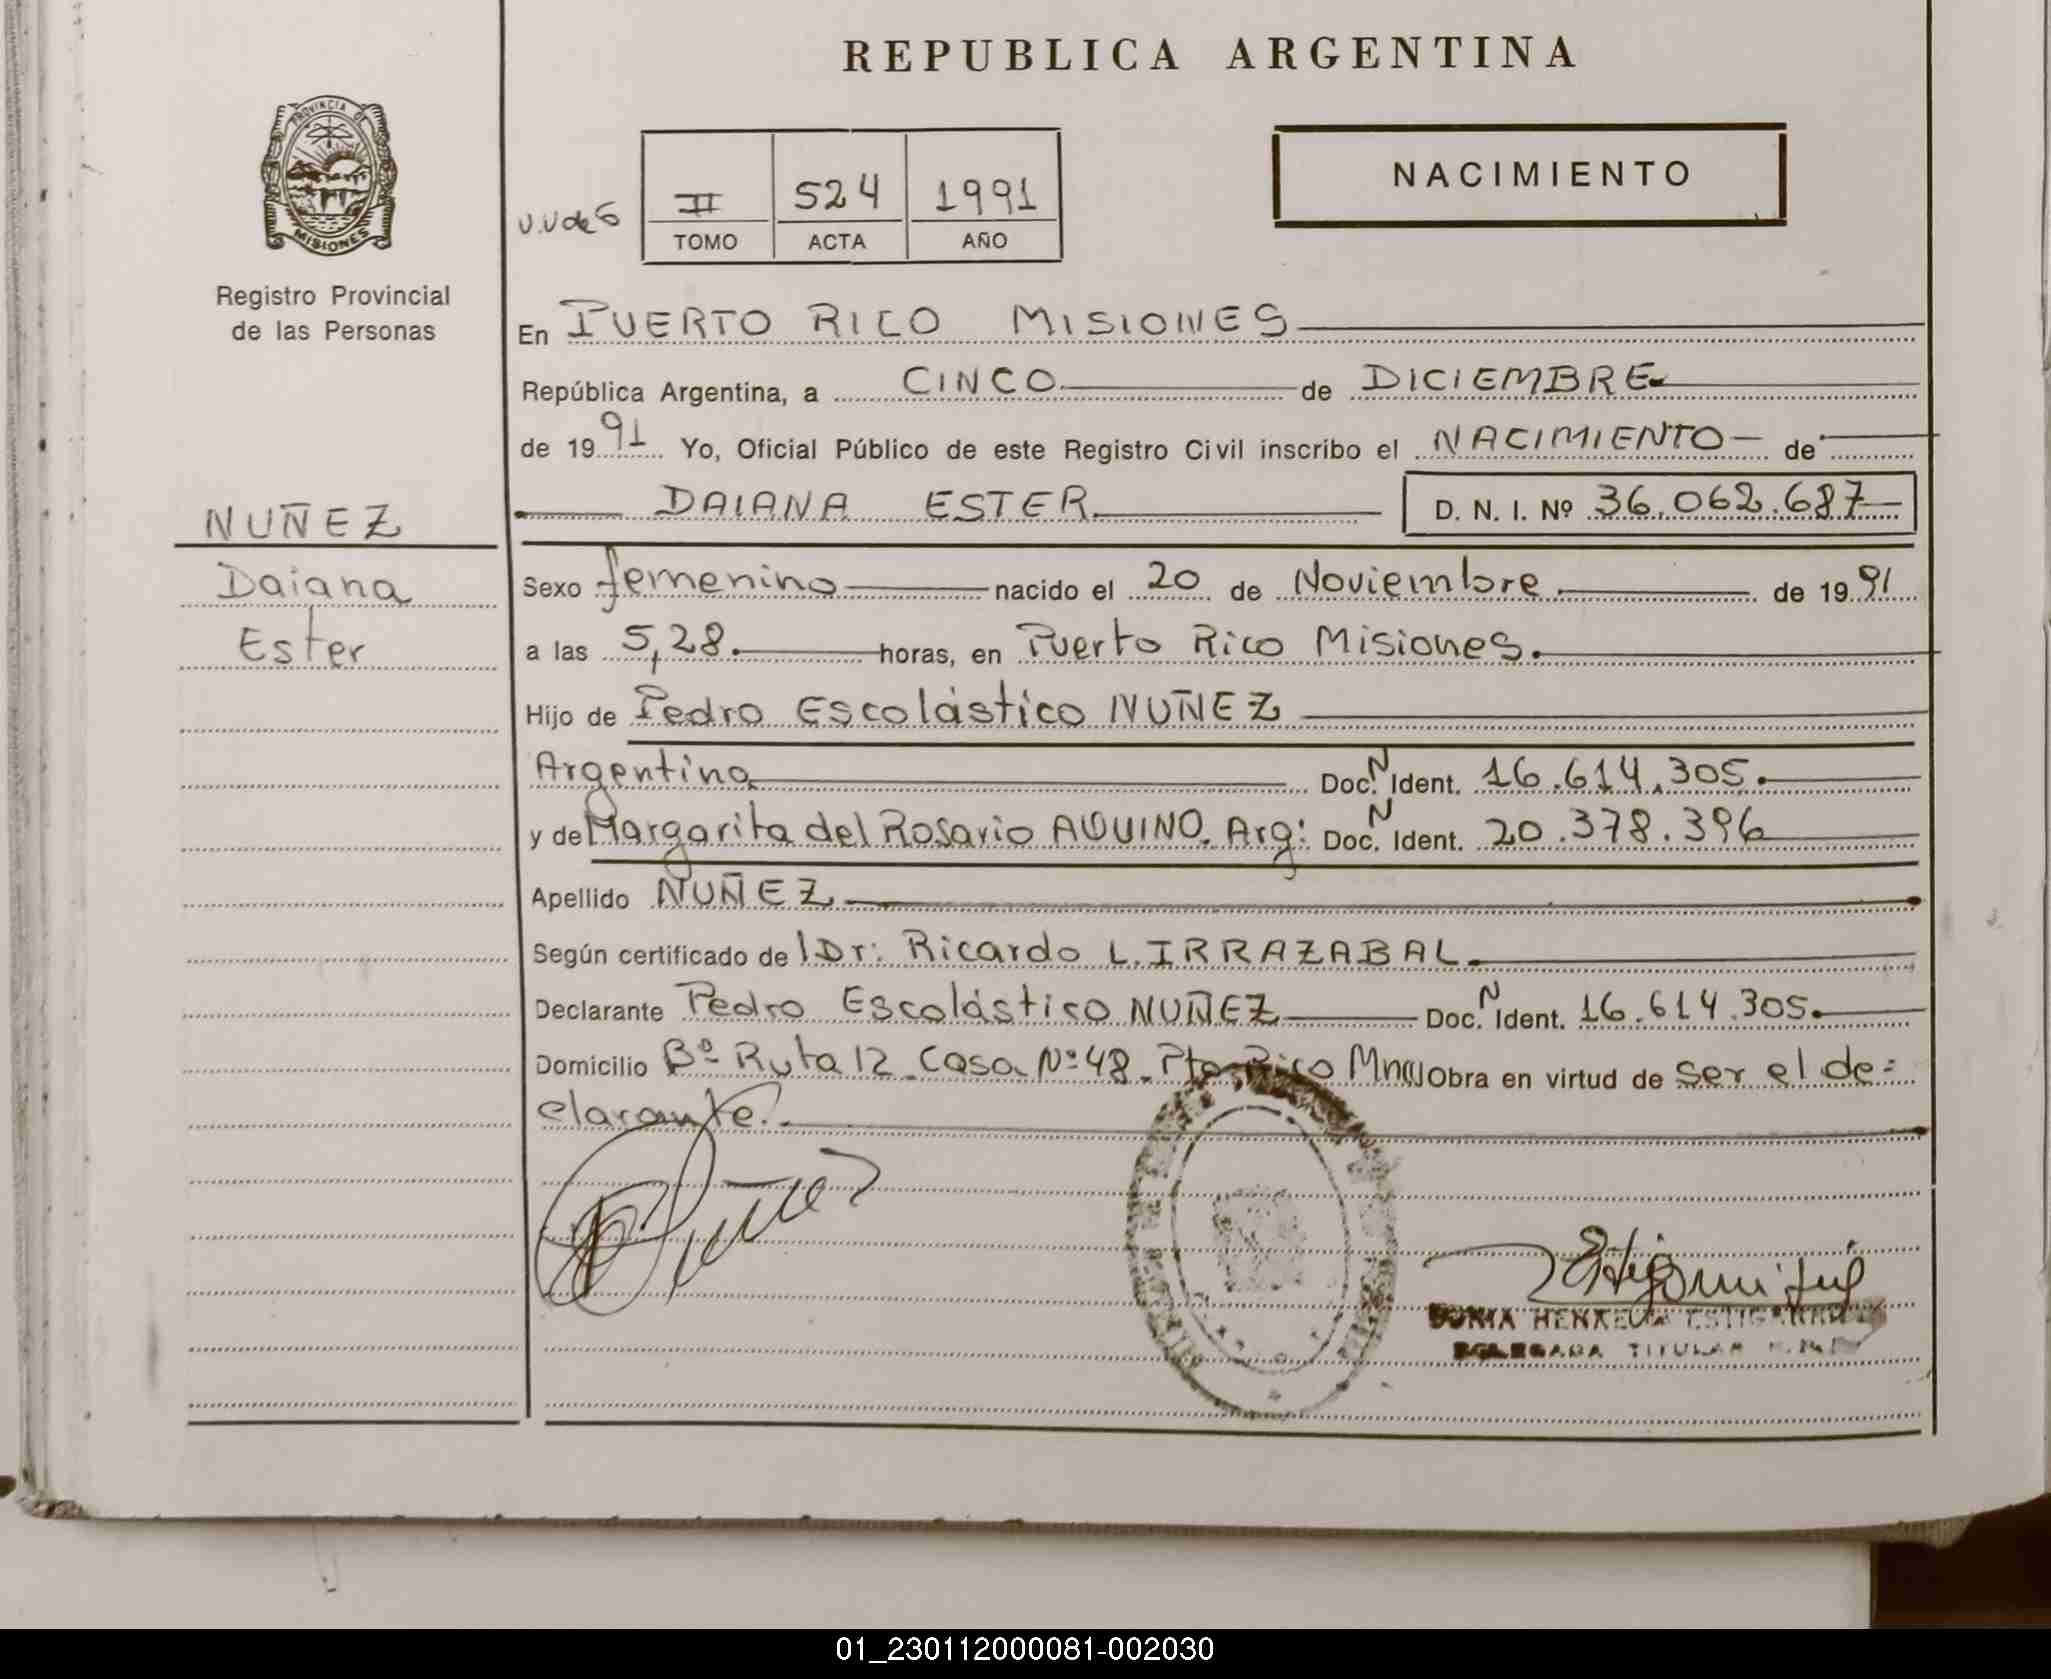 REPUBLICA ARGENTINA
PROVINCIA DE
MISIONES
Registro Provincial
de las Personas
NACIMIENTO
II 524 1991
TOMO ACTA AÑO
En PUERTO RICO MISIONES
República Argentina, a CINCO de DICIEMBRE
de 1991 Yo, Oficial Público de este Registro Civil inscribo el NACIMIENTO de
DAIANA ESTER D. N. I. Nº 36.062.687
NUÑEZ
Daiana
Ester
Sexo femenino nacido el 20 de Noviembre de 1991
a las 5,28. horas, en Puerto Rico Misiones.
Hijo de Pedro Escolástico NUÑEZ
Argentina Doc. N Ident. 16.614.305.
y de Margarita del Rosario AQUINO. Arg: Doc. N Ident. 20.378.396
Apellido NUÑEZ
Según certificado de l Dr: Ricardo L. IRRAZABAL.
Declarante Pedro Escolástico NUÑEZ Doc. N Ident. 16.614.305.
Domicilio Bº Ruta 12 Casa Nº 48. Pto Rico Mnes Obra en virtud de ser el de=
clarante.
HENKE
DELEGADA TITULAR
01_230112000081-002030